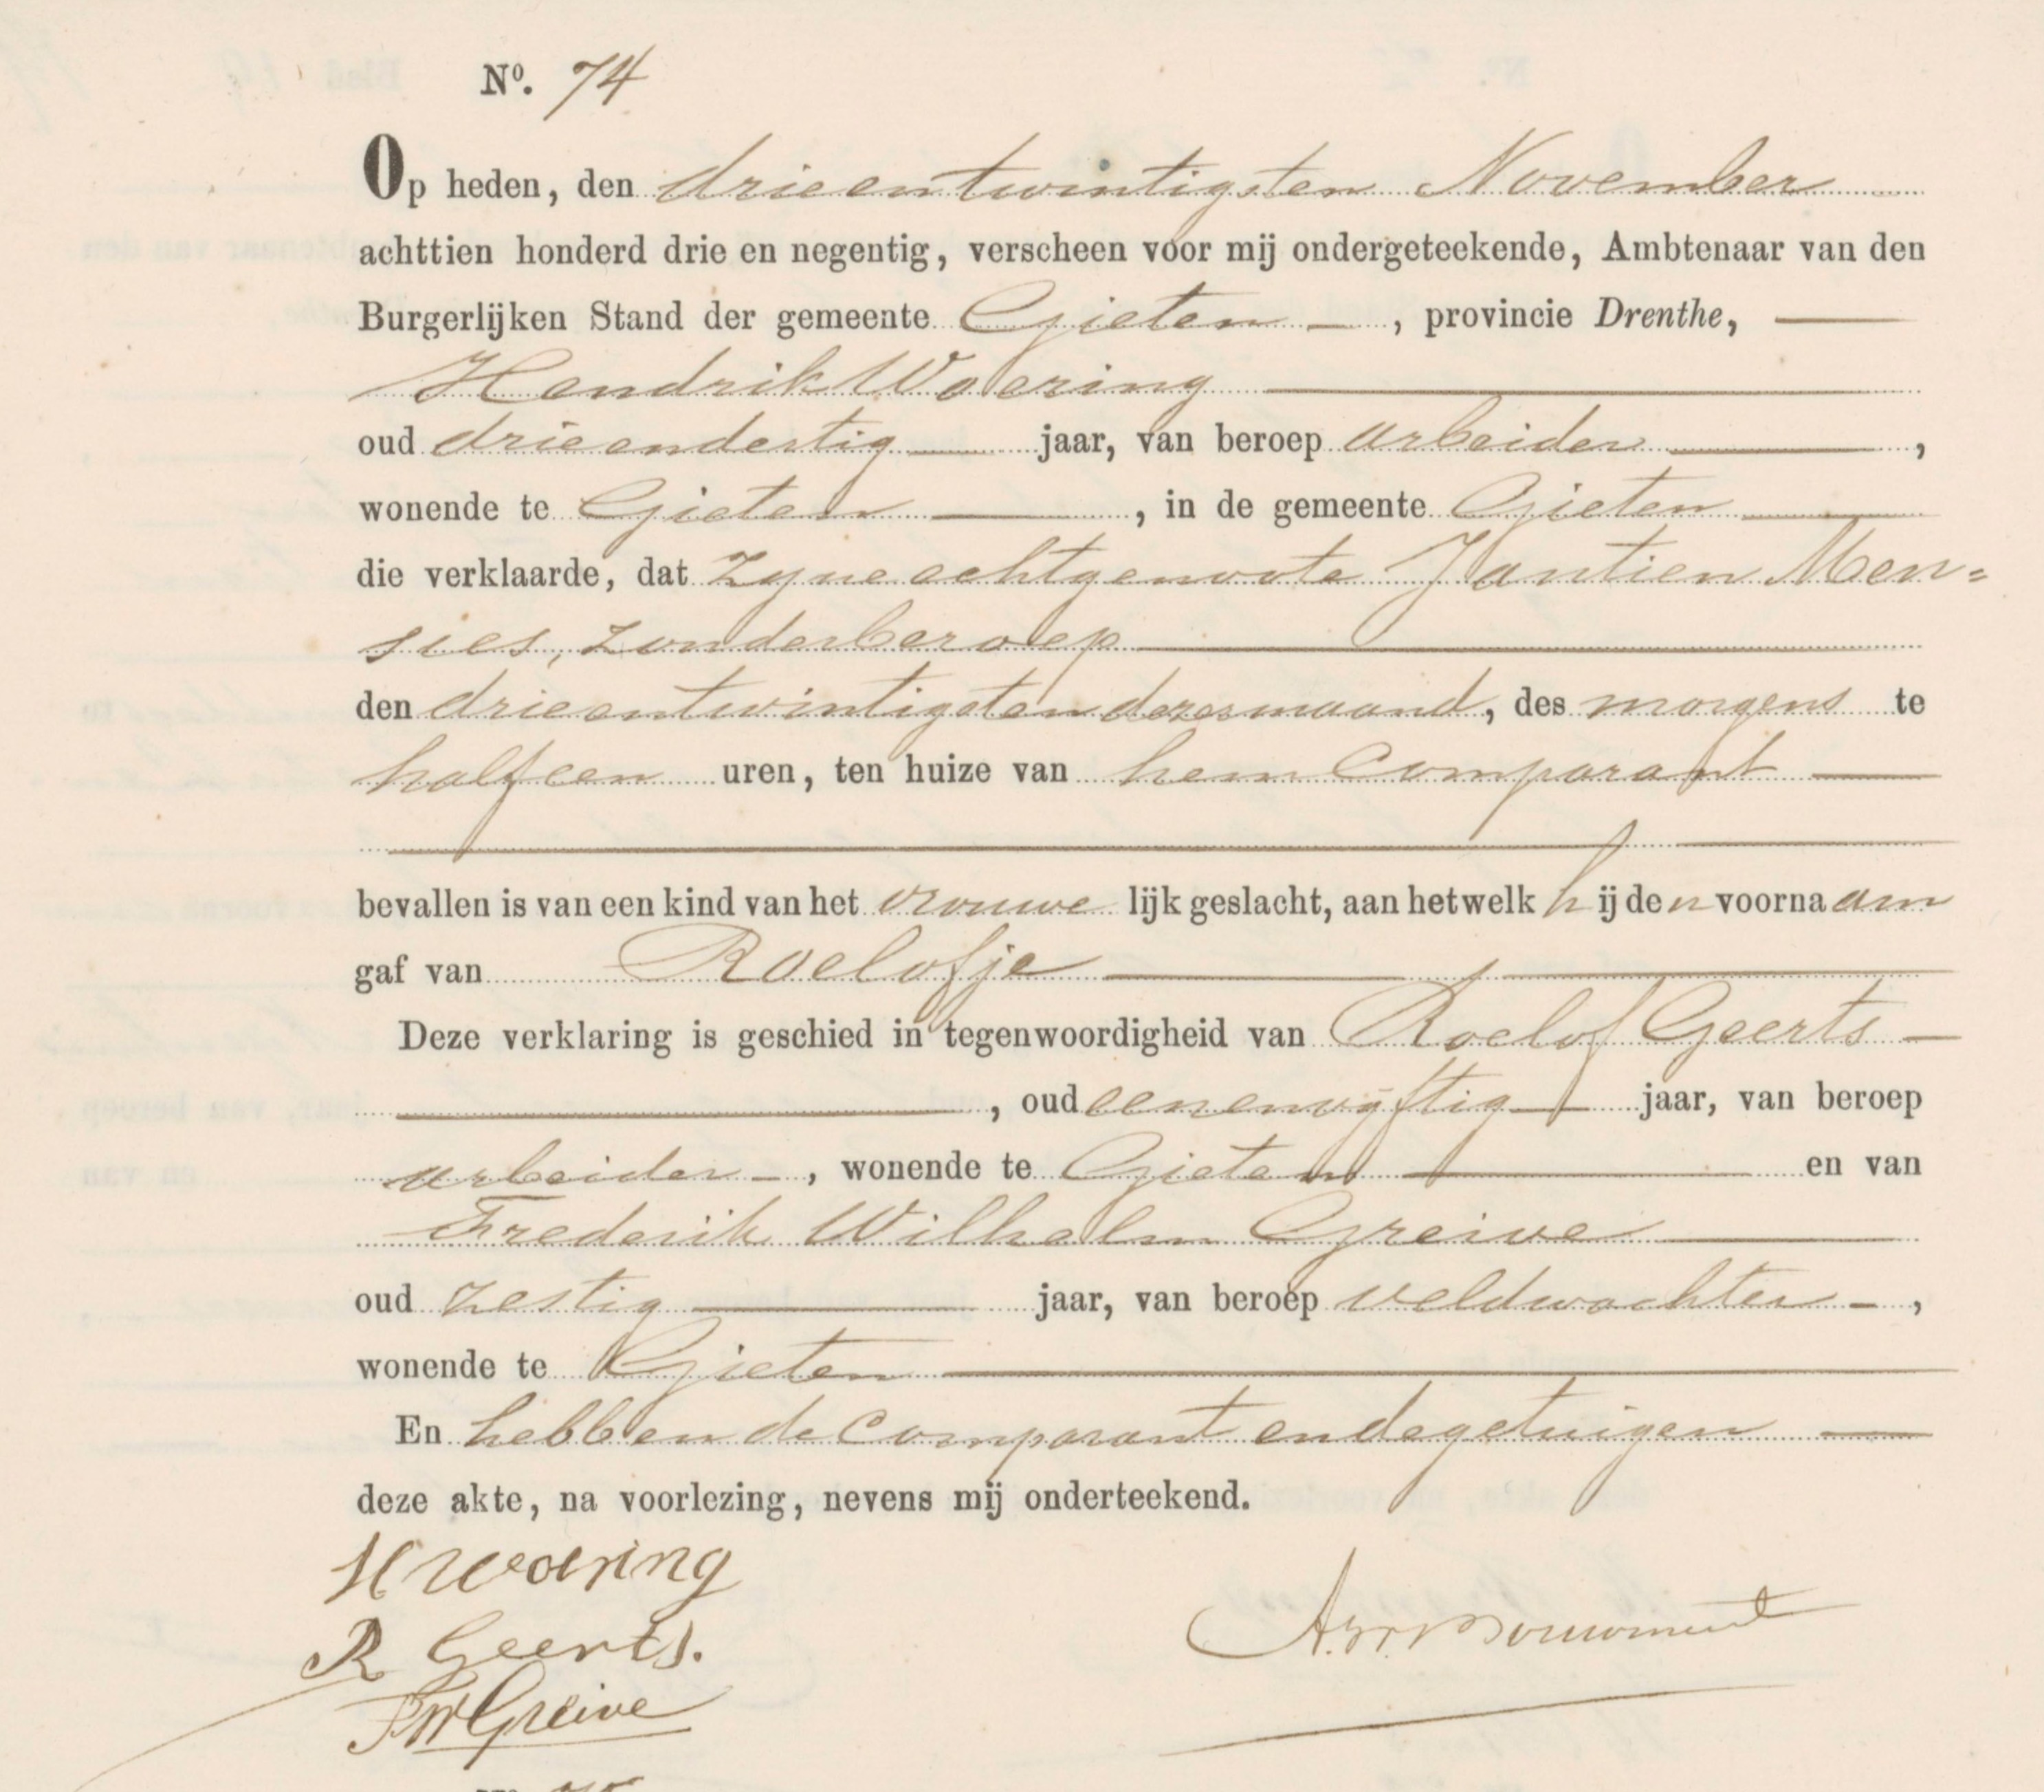 Nº. 74
Op heden, den drieentwintigsten November
achttien honderd drie en negentig, verscheen voor mij ondergeteekende, Ambtenaar van den
Burgerlijken Stand der gemeente Gieten, provincie Drenthe,
Hendrik Woering
oud drieendertig jaar, van beroep arbeider,
wonende te Gieten, in de gemeente Gieten
die verklaarde, dat zyne echtgenoote Jantien Men=
sies, zonder beroep
den drieentwintigsten dezer maand, des morgens te
half een uren, ten huize van hem Comparant
bevallen is van een kind van het vrouwelijk geslacht, aan hetwelk hij den voornaam
gaf van Roelofje
Deze verklaring is geschied in tegenwoordigheid van Roelof Geerts
, oud eenenvyftig jaar, van beroep
arbeider, wonende te Gieten en van
Frederik Wilhelm Greive
oud zestig jaar, van beroep veldwachter,
wonende te Gieten
En hebben de Comparant en de getuigen
deze akte, na voorlezing, nevens mij onderteekend.
H Woering
R Geerts.
FW Greive